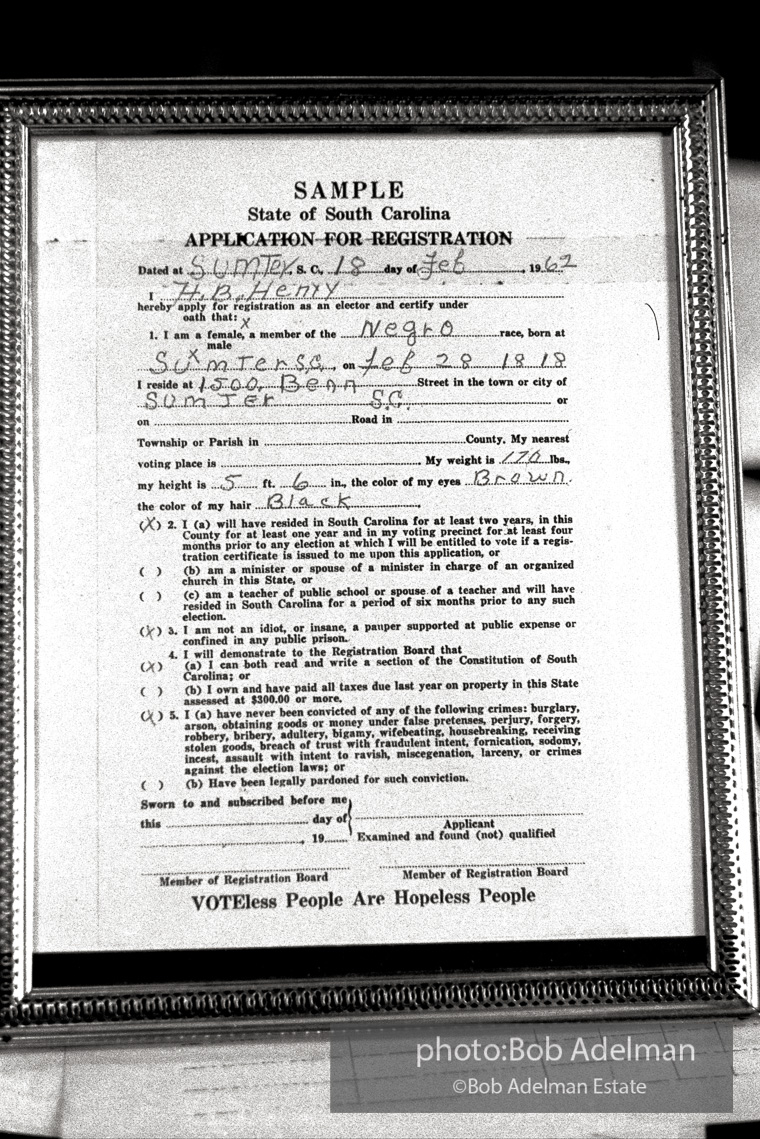 SAMPLE
State of South Carolina
APPLICATION FOR REGISTRATION
Dated at SUMTER, S. C., 18 day of Feb, 1962
I H.B. Henry
hereby apply for registration as an elector and certify under
oath that:
x
1. I am a female, a member of the Negro race, born at
male
x
SUMTER S.C., on Feb 28 1818
I reside at 1500, Benn Street in the town or city of
SUMTER S.C. or
on Road in
Township or Parish in County. My nearest
voting place is . My weight is 170 lbs.,
my height is 5 ft. 6 in., the color of my eyes Brown.
the color of my hair Black,
(X) 2. I (a) will have resided in South Carolina for at least two years, in this
County for at least one year and in my voting precinct for at least four
months prior to any election at which I will be entitled to vote if a regis-
tration certificate is issued to me upon this application, or
( ) (b) am a minister or spouse of a minister in charge of an organized
church in this State, or
( ) (c) am a teacher of public school or spouse of a teacher and will have
resided in South Carolina for a period of six months prior to any such
election.
(X) 3. I am not an idiot, or insane, a pauper supported at public expense or
confined in any public prison.
4. I will demonstrate to the Registration Board that
(X) (a) I can both read and write a section of the Constitution of South
Carolina; or
( ) (b) I own and have paid all taxes due last year on property in this State
assessed at $300.00 or more.
(X) 5. I (a) have never been convicted of any of the following crimes: burglary,
arson, obtaining goods or money under false pretenses, perjury, forgery,
robbery, bribery, adultery, bigamy, wifebeating, housebreaking, receiving
stolen goods, breach of trust with fraudulent intent, fornication, sodomy,
incest, assault with intent to ravish, miscegenation, larceny, or crimes
against the election laws; or
( ) (b) Have been legally pardoned for such conviction.
Sworn to and subscribed before me
this day of
Applicant
, 19 Examined and found (not) qualified
Member of Registration Board Member of Registration Board
VOTEless People Are Hopeless People
photo:Bob Adelman
©Bob Adelman Estate